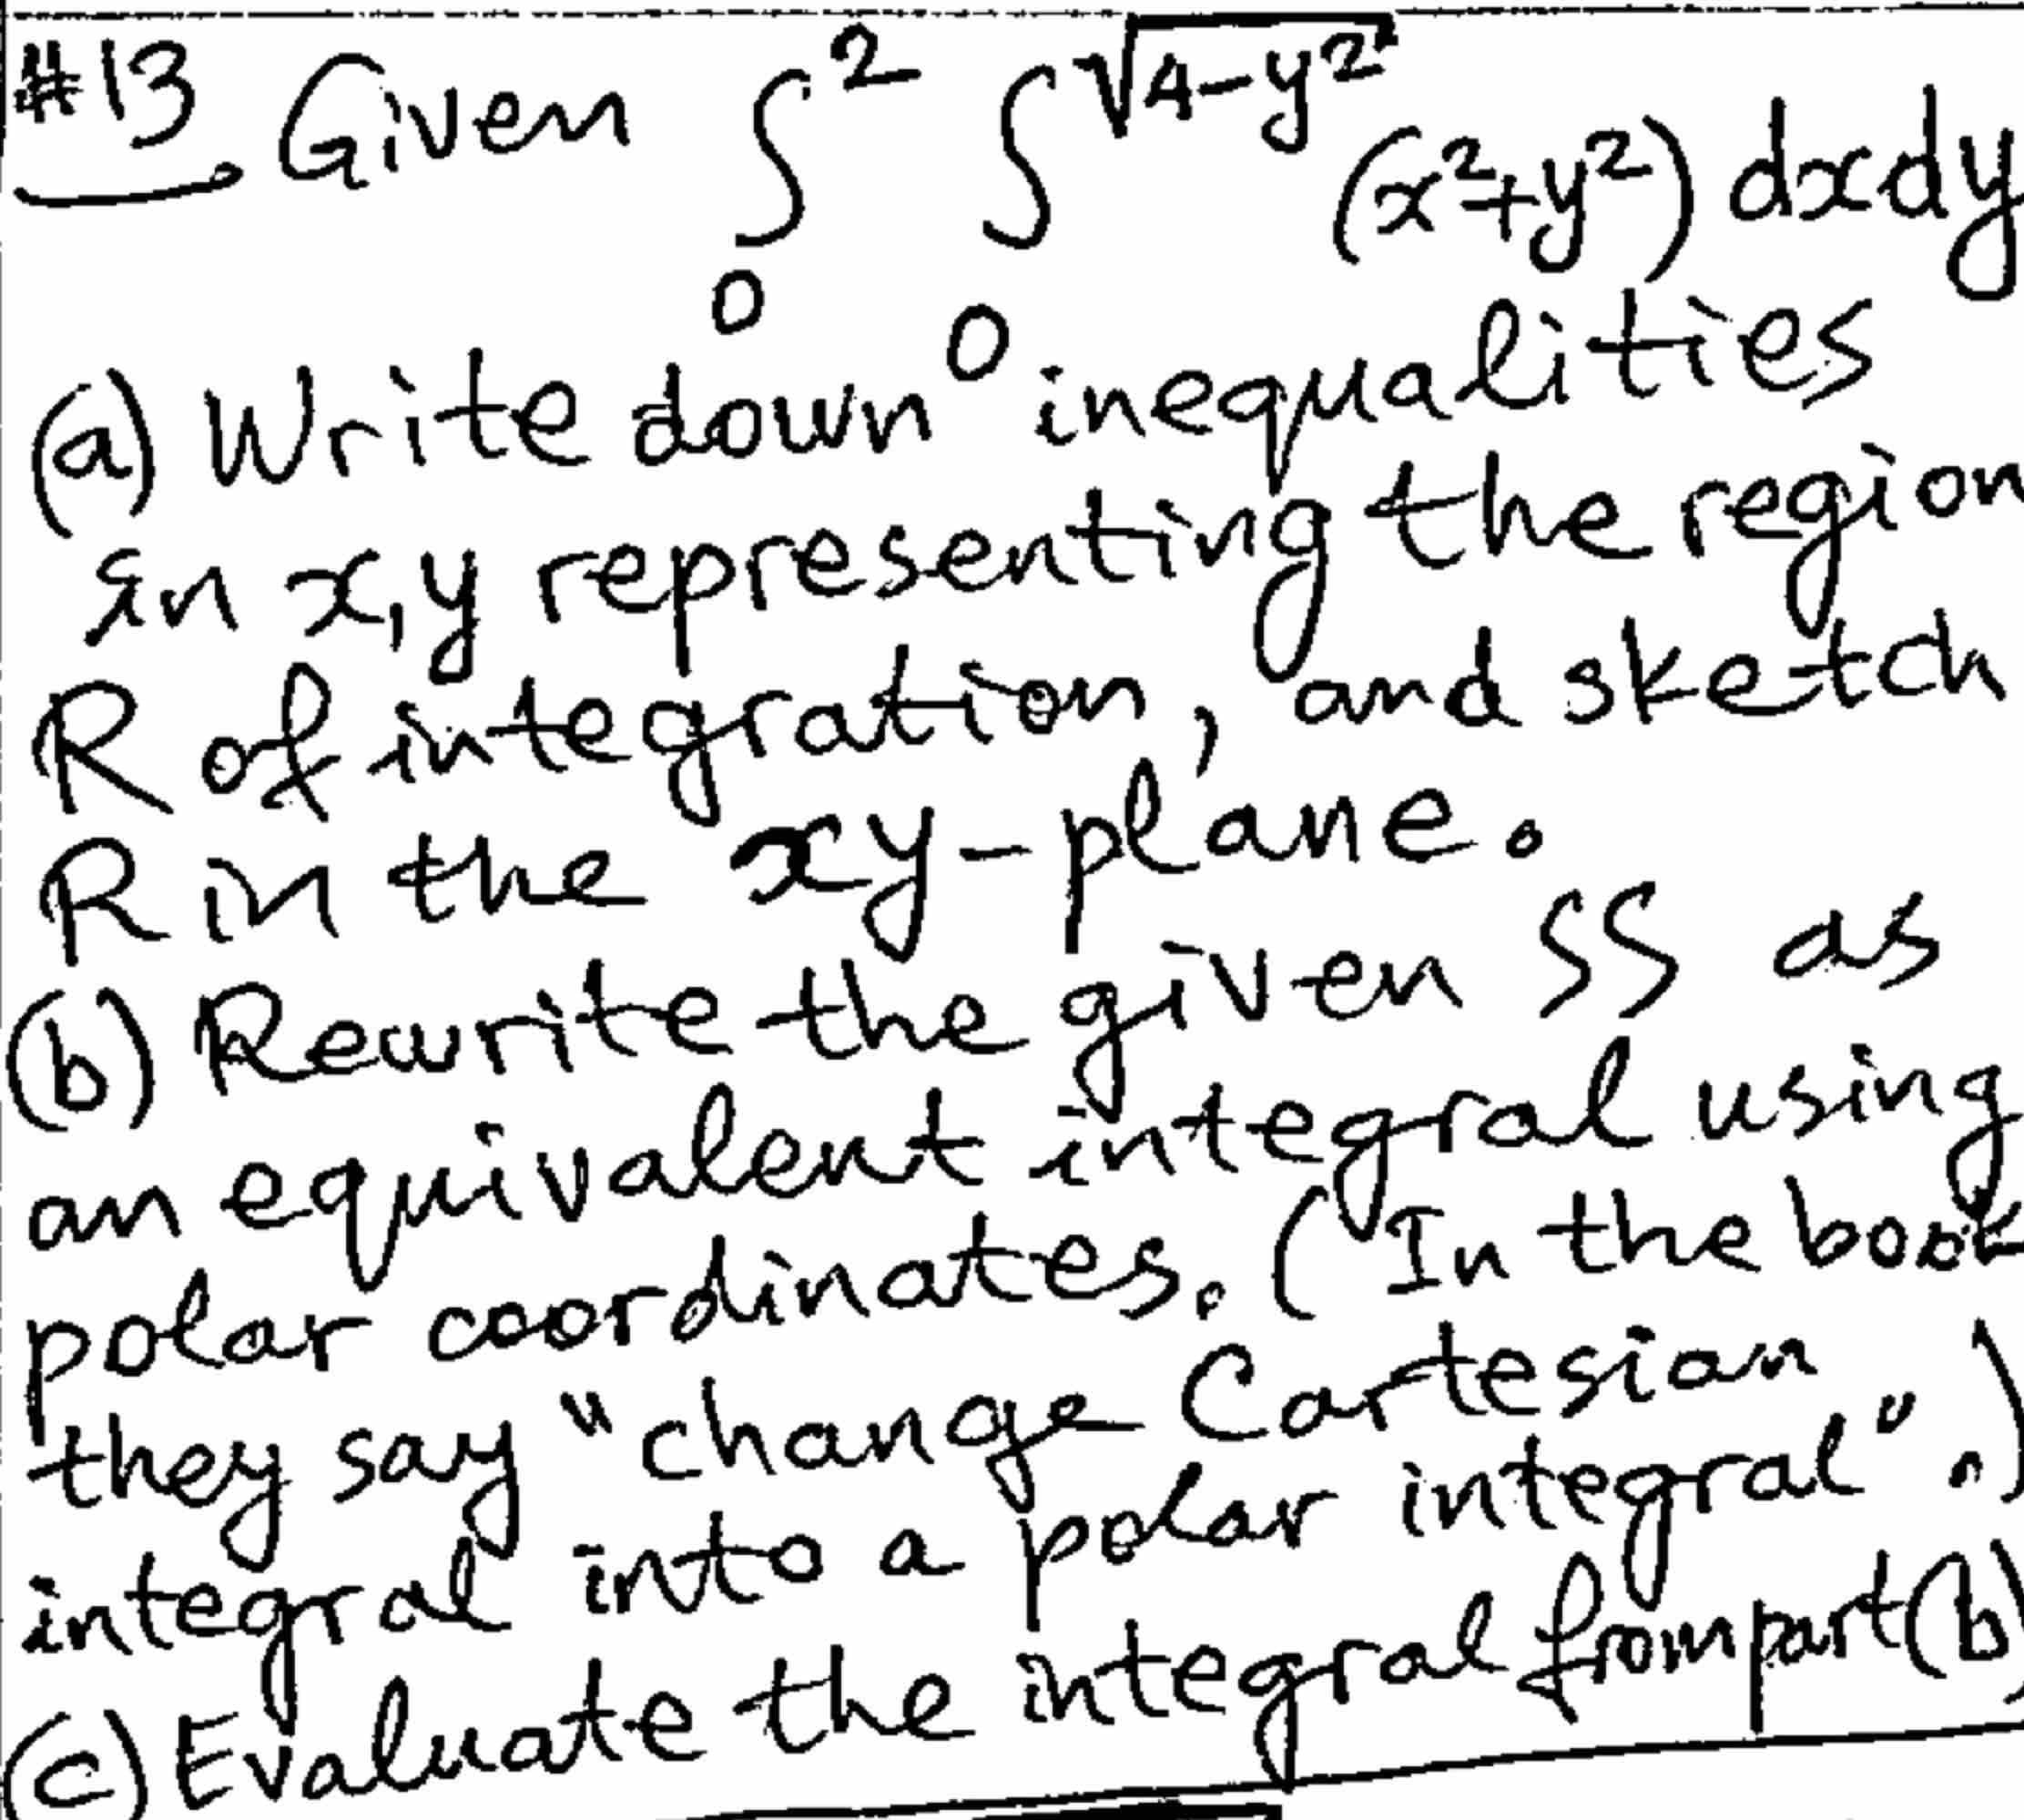 #13. Given ∫₀² ∫₀^√(4-y²) (x²+y²) dx dy
(a) Write down inequalities
in x,y representing the region
R of integration, and sketch
R in the xy-plane.
(b) Rewrite the given ∫∫ as
an equivalent integral using
polar coordinates. (In the book
they say "change Cartesian
integral into a polar integral".)
(c) Evaluate the integral from part (b)